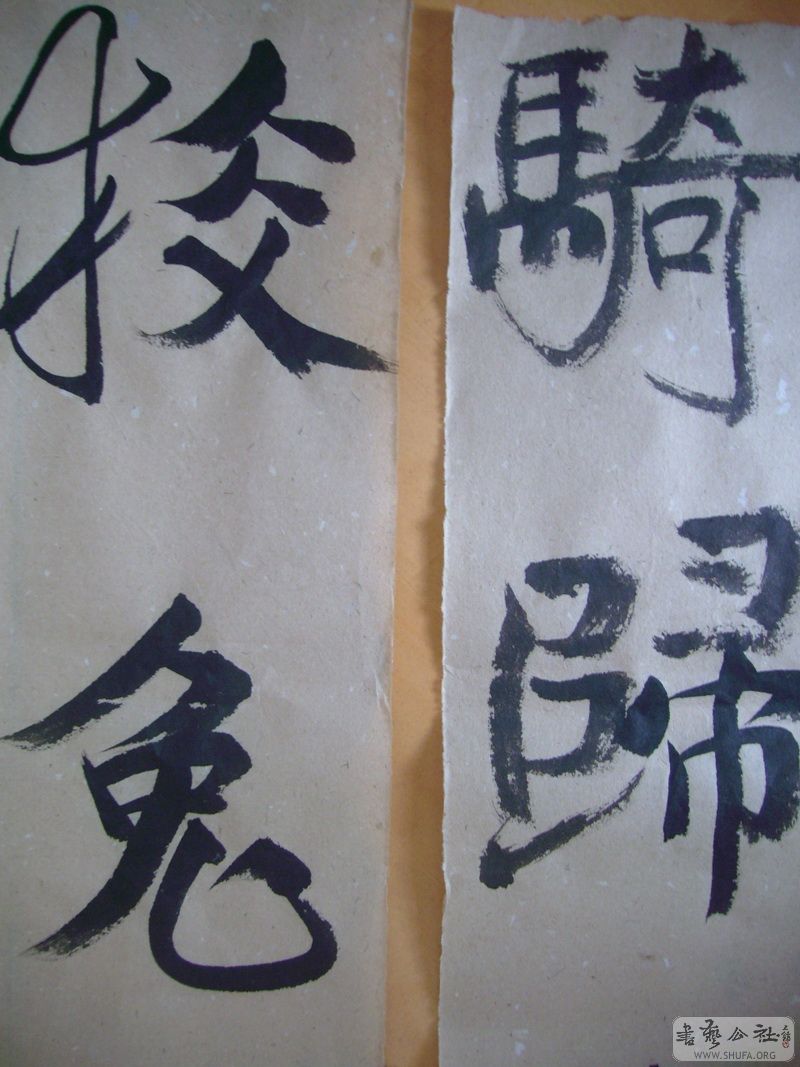 騎歸
狡兔
書藝公社
WWW.SHUFA.ORG